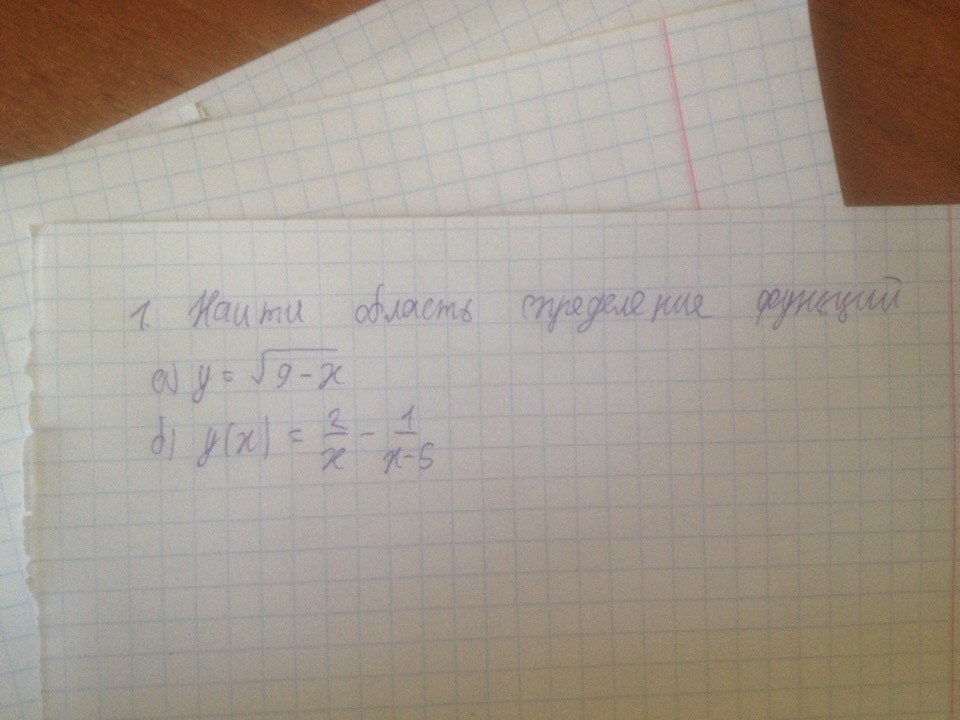 1. Наити область определение функций
а) y = √9-x
б) y(x) = 2/x - 1/x-5